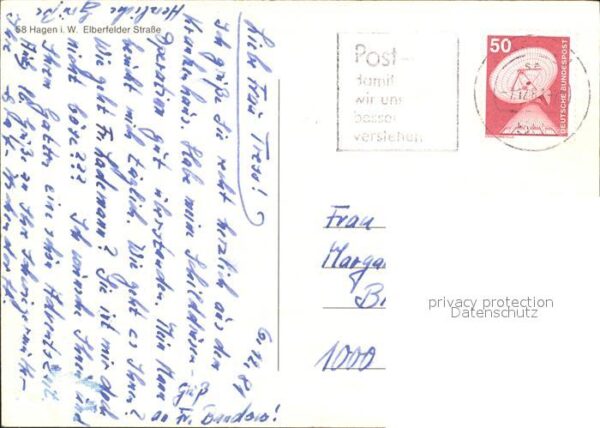 58 Hagen i. W. Elberfelder Straße
6.12.81
Lieb Frau Treser!
Ich grüße Sie recht herzlich aus dem
Krankenhaus. Habe meine Schilddrüsen-
Operation gut überstanden. Mein Mann
besucht mich täglich. Wie geht es Ihnen?
Wie geht Fr. Lademann? Sie ist mir doch
nicht böse??? Ich wünsche Ihnen und
Ihrem Gatten eine schöne Adventszeit.
Grüße an Ihre Schwiegermutter
Herzliche Grüße
Ihre
Gruß
an Fr. Bandow!
Post-
damit
wir uns
besser
verstehen
50
DEUTSCHE BUNDESPOST
Frau
Marga
B
1000
privacy protection
Datenschutz